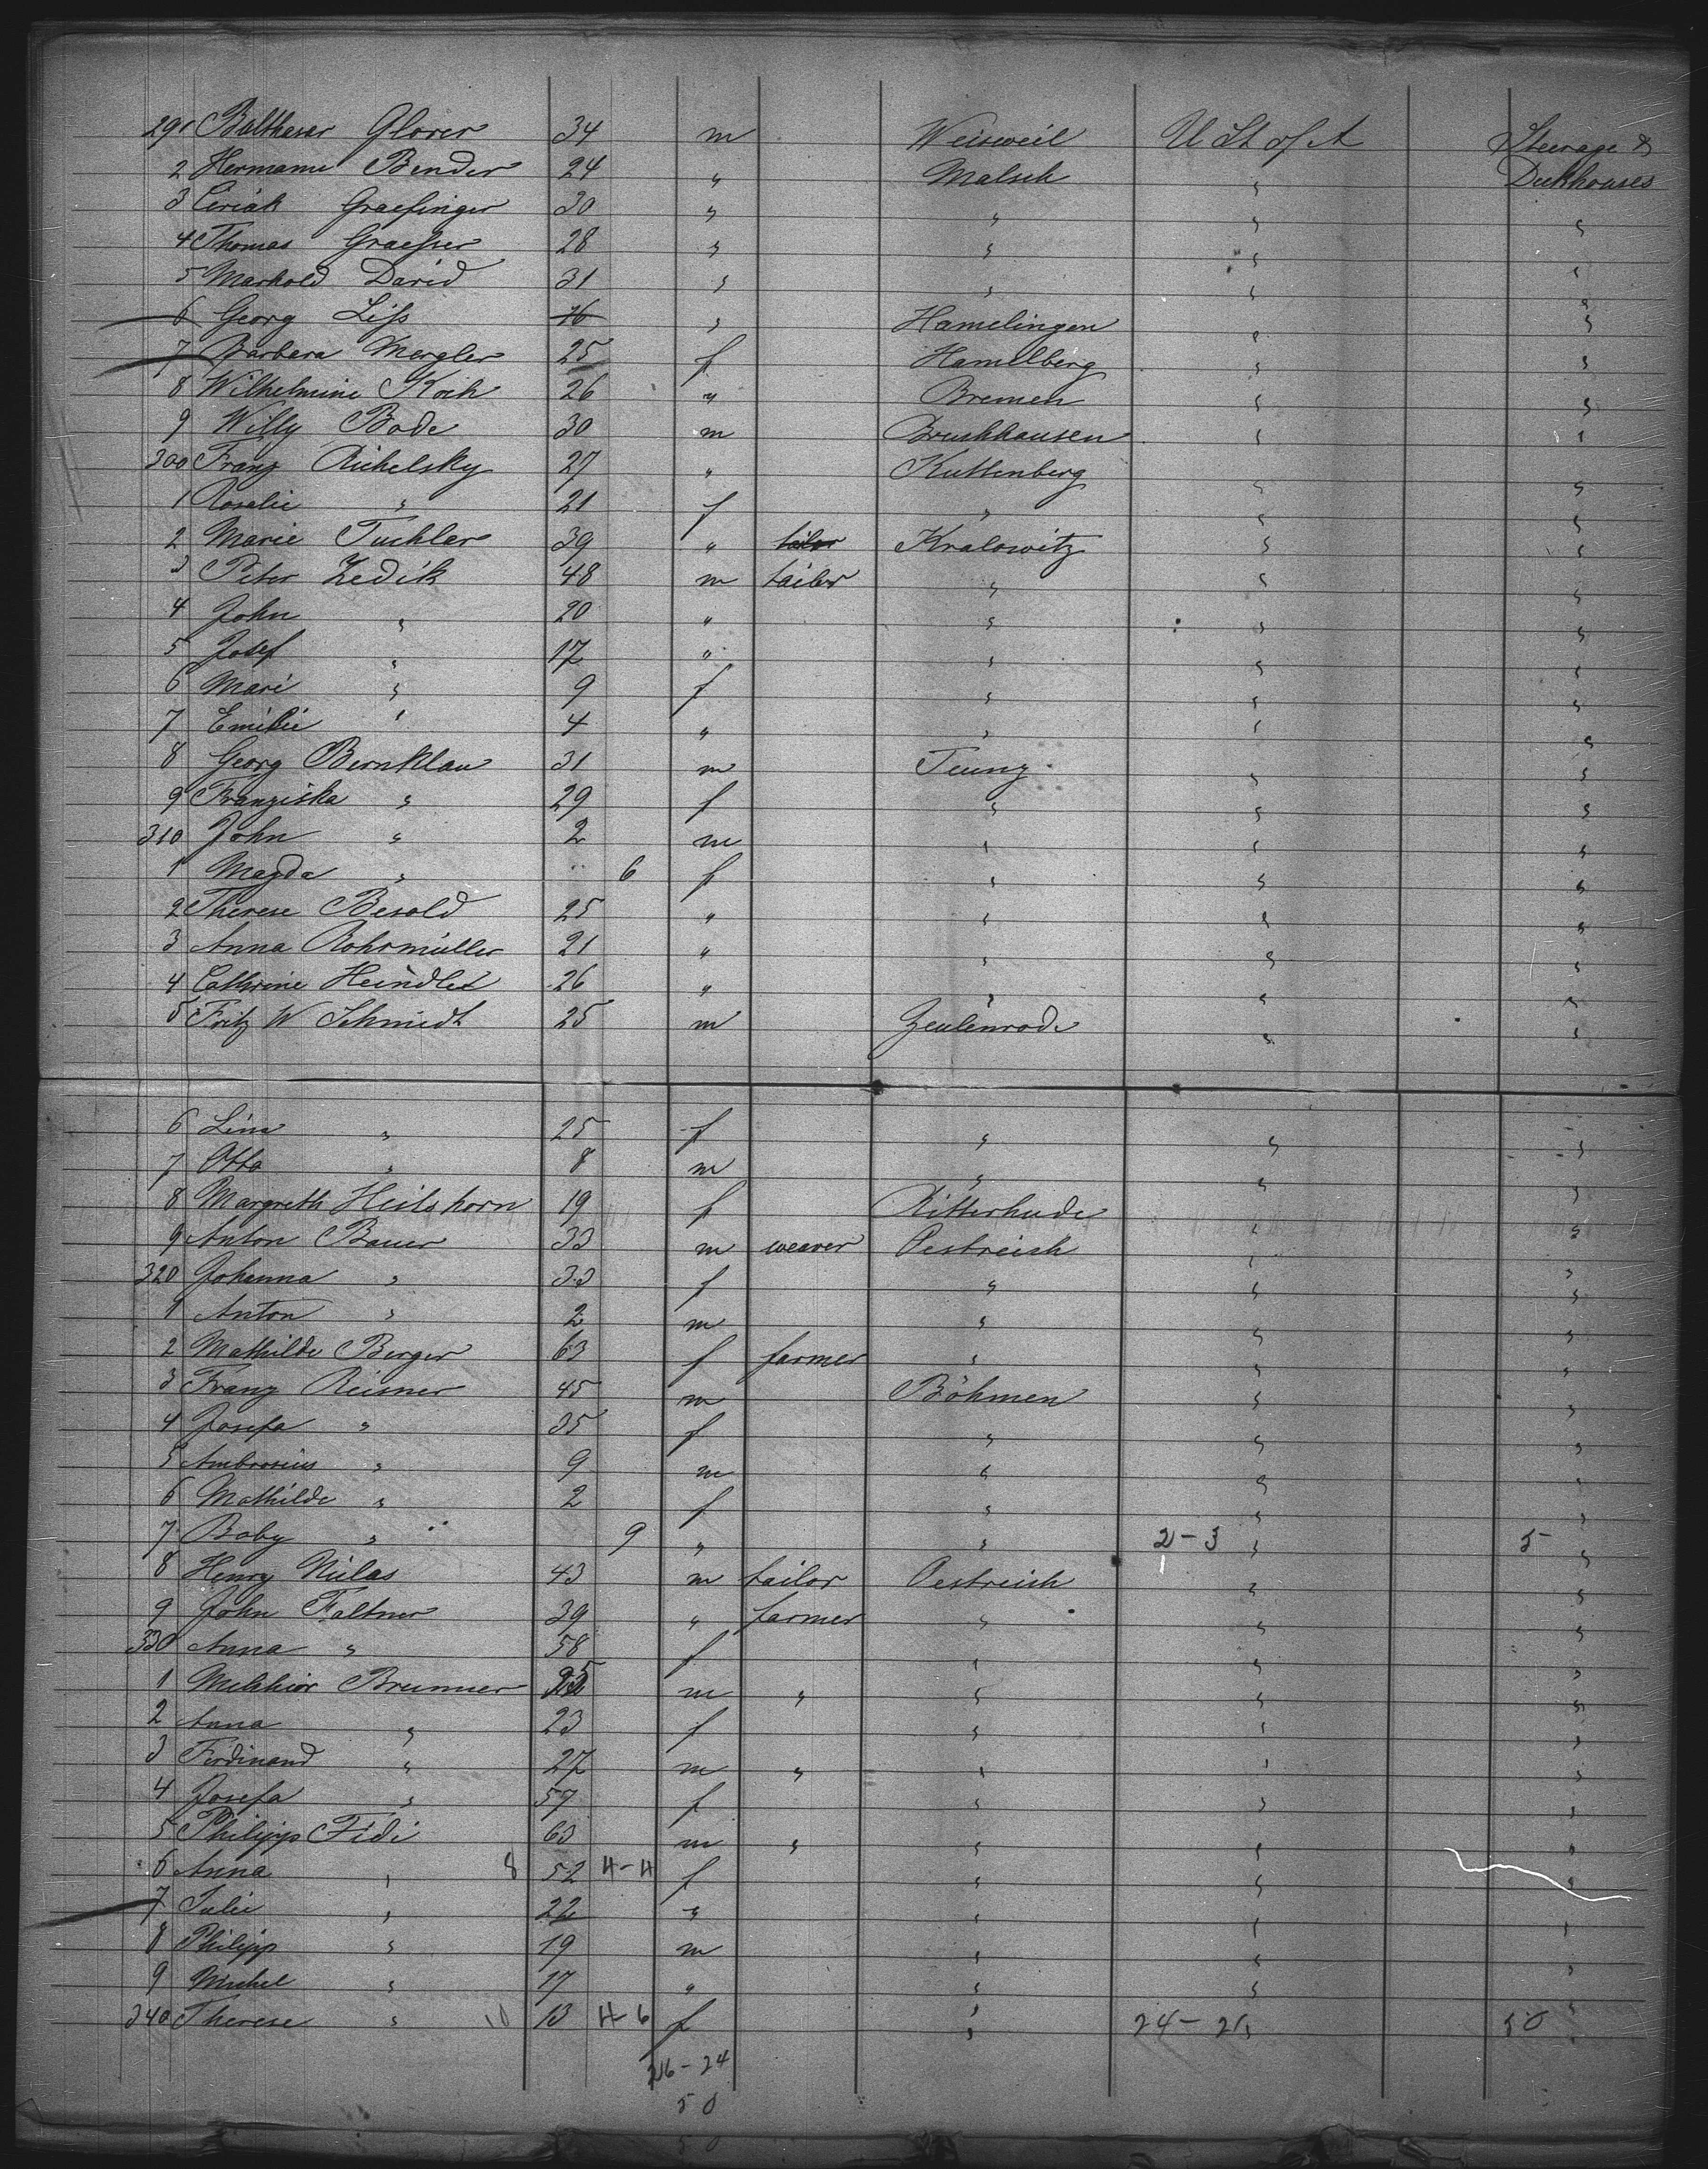 291 Balthasar Glorer 34 m Weisweil U St of A Steerage &
2 Hermann Bender 24 " Malsch " Deckhouses
3 Ciriak Graefinger 30 " " " "
4 Thomas Graesser 28 " " " "
5 Markold David 31 " " " "
6 Georg Liss 16 " Hamelingen " "
7 Barbara Mergler 25 f Hamelberg " "
8 Wilhelmine Koch 26 " Bremen " "
9 Willy Bode 30 m Bruchhausen " "
300 Franz Richelsky 27 " Kuttenberg " "
1 Rosalie " 21 f " " "
2 Marie Tuchler 39 " tailor Kralowitz " "
3 Peter Zedik 48 m tailor " " "
4 John " 20 " " " "
5 Josef " 17 " " " "
6 Mari " 9 f " " "
7 Emilie " 4 " " " "
8 Georg Bernklau 31 m Teunz " "
9 Franziska " 29 f " " "
310 John " 2 m " " "
1 Magda " 6 f " " "
2 Therese Besold 25 " " " "
3 Anna Rohrmüller 21 " " " "
4 Cathrine Heindler 26 " " " "
5 Fritz W Schmidt 25 m Zeulenrode " "
6 Lina " 25 f " " "
7 Otto " 8 m " " "
8 Margreth Heilshorn 19 f Ritterhude " "
9 Anton Bauer 33 m weaver Oestreich " "
320 Johanna " 33 f " " "
1 Anton " 2 m " " "
2 Mathilde Berger 63 f farmer " " "
3 Franz Reisner 45 m Böhmen " "
4 Josefa " 35 f " " "
5 Ambrosius " 9 m " " "
6 Mathilde " 2 f " " "
7 Baby " 9 " " 2-3 " 5 "
8 Henry Nielas 43 m tailor Oestreich " "
9 John Faltner 39 " farmer " " "
330 Anna " 58 f " " "
1 Melchior Brunner m " " " "
2 Anna " 23 f " " "
3 Ferdinand " 27 m " " " "
4 Josefa " 57 f " " "
5 Philipp Fidi 63 m " " " "
6 Anna " 8 52 4-4 f " " "
7 Julie " 22 " " " "
8 Philipp " 19 m " " "
9 Michel " 17 " " " "
340 Therese " 10 13 4-6 f " 24-26 50 "
26-24
50
50